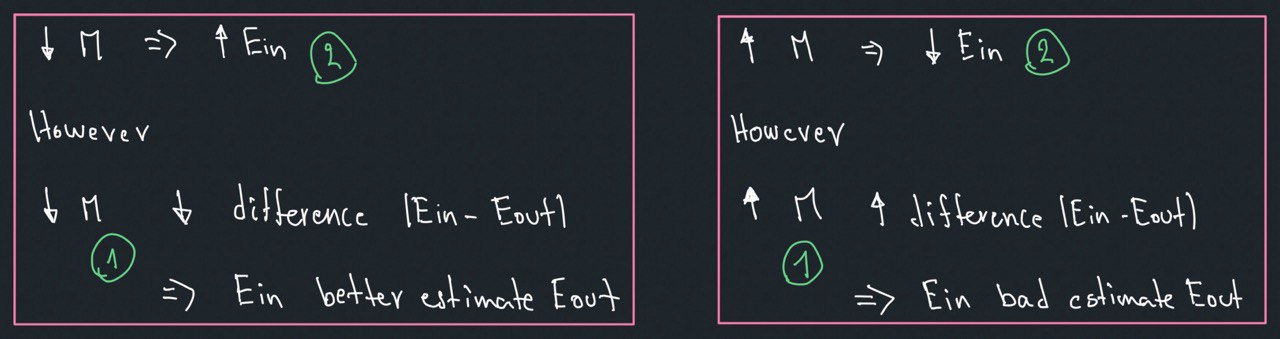 ↓ M ⇒ ↑ Ein ②
However
↓ M ↓ difference |Ein - Eout|
①
⇒ Ein better estimate Eout
↑ M ⇒ ↓ Ein ②
However
↑ M ↑ difference |Ein - Eout|
①
⇒ Ein bad estimate Eout